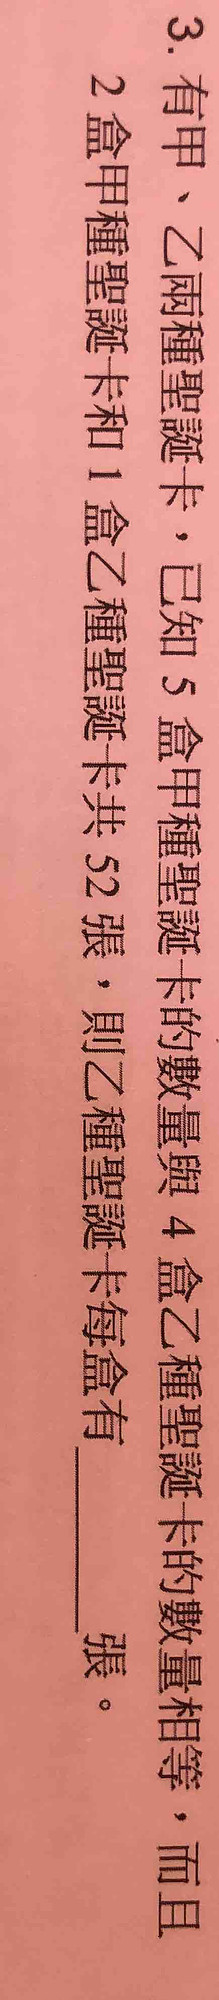 3. 有甲、乙兩種聖誕卡，已知 5 盒甲種聖誕卡的數量與 4 盒乙種聖誕卡的數量相等，而且
2 盒甲種聖誕卡和 1 盒乙種聖誕卡共 52 張，則乙種聖誕卡每盒有______張。